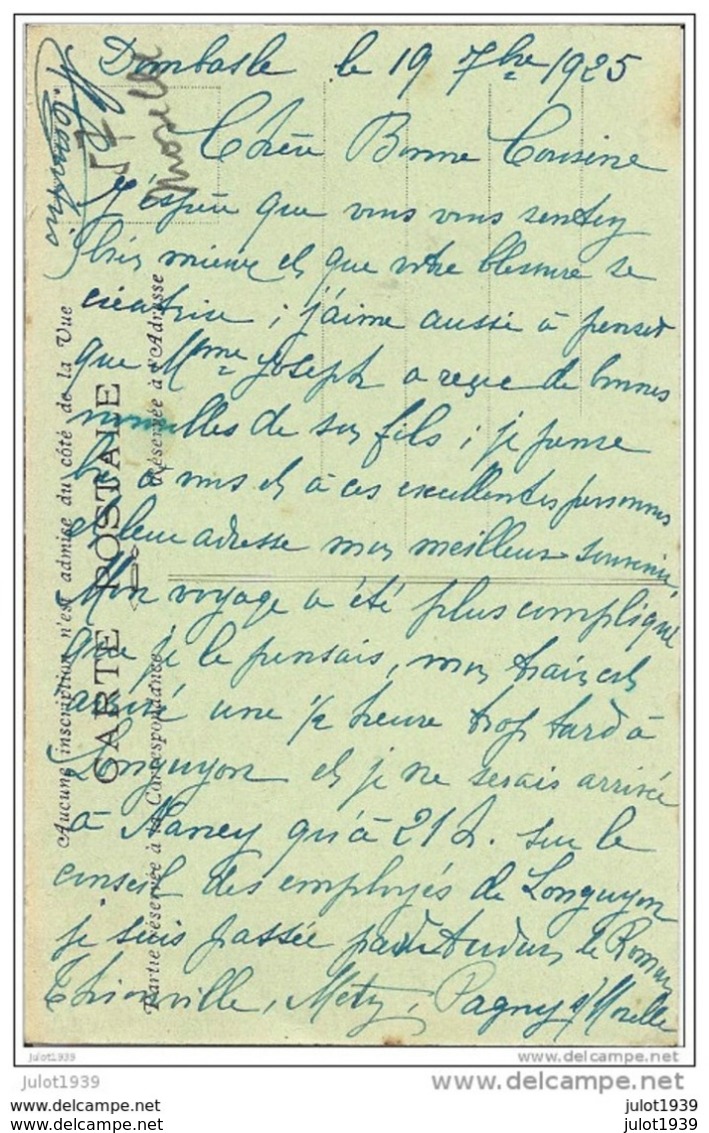 Dombasle le 19 7bre 1925
Chère Bonne Cousine
J'espère que vous vous sentez
bien mieux et que votre blessure se
cicatrise ; j'aime aussi à penser
que Mme Joseph a reçue de bonnes
nouvelles de son fils ; je pense
à vous et à ces excellentes personnes
et leur adresse mon meilleur souvenir
Mon voyage a été plus compliqué
que je le pensais, mon train est
arrivé une 1/2 heure trop tard à
Longuyon et je ne serais arrivée
à Nancy qu'à 21 h. sur le
conseil des employés de Longuyon
je suis passée par Audun le Roman
Thionville, Metz, Pagny s/ Moselle
57
Moselle
Aucune inscription n'est admise du côté de la Vue
CARTE POSTALE
Partie réservée à la Correspondance
Réservée à l'Adresse
julot1939
delcampe.net
julot1939
delcampe.net
julot1939
julot1939
julot1939
julot1939